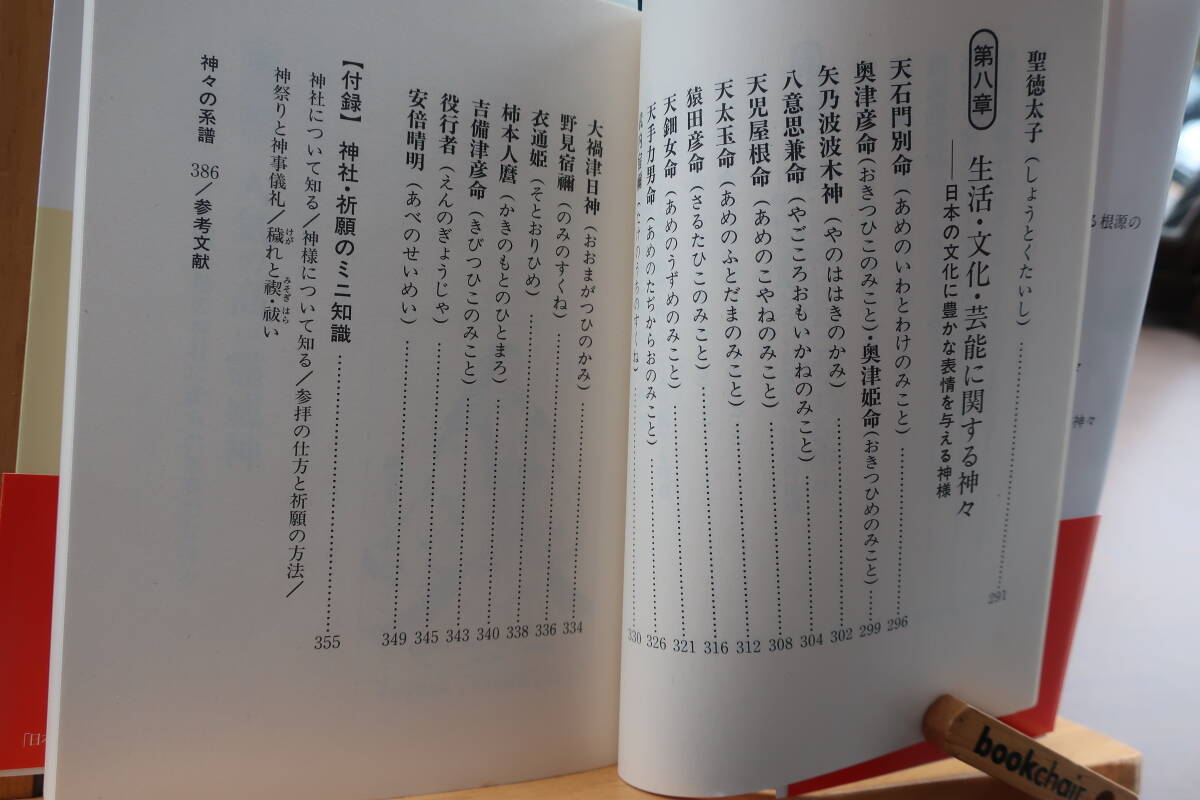 聖徳太子(しょうとくたいし)……291
第八章 生活・文化・芸能に関する神々
――日本の文化に豊かな表情を与える神様
天石門別命(あめのいわとわけのみこと)……296
奥津彦命(おきつひこのみこと)・奥津姫命(おきつひめのみこと)……299
矢乃波波木神(やのははきのかみ)……302
八意思兼命(やごころおもいかねのみこと)……304
天児屋根命(あめのこやねのみこと)……308
天太玉命(あめのふとだまのみこと)……312
猿田彦命(さるたひこのみこと)……316
天鈿女命(あめのうずめのみこと)……321
天手力男命(あめのたぢからおのみこと)……326
宿禰(たけのうちのすくね)……330
大禍津日神(おおまがつひのかみ)……334
野見宿禰(のみのすくね)……336
衣通姫(そとおりひめ)……338
柿本人麿(かきのもとのひとまろ)……340
吉備津彦命(きびつひこのみこと)……343
役行者(えんのぎょうじゃ)……345
安倍晴明(あべのせいめい)……349
【付録】 神社・祈願のミニ知識……355
神社について知る/神様について知る/参拝の仕方と祈願の方法/
神祭りと神事儀礼/穢れと禊・祓い
けが みそぎ はら
神々の系譜 386/参考文献
る根源の
神々
「日本
bookchair